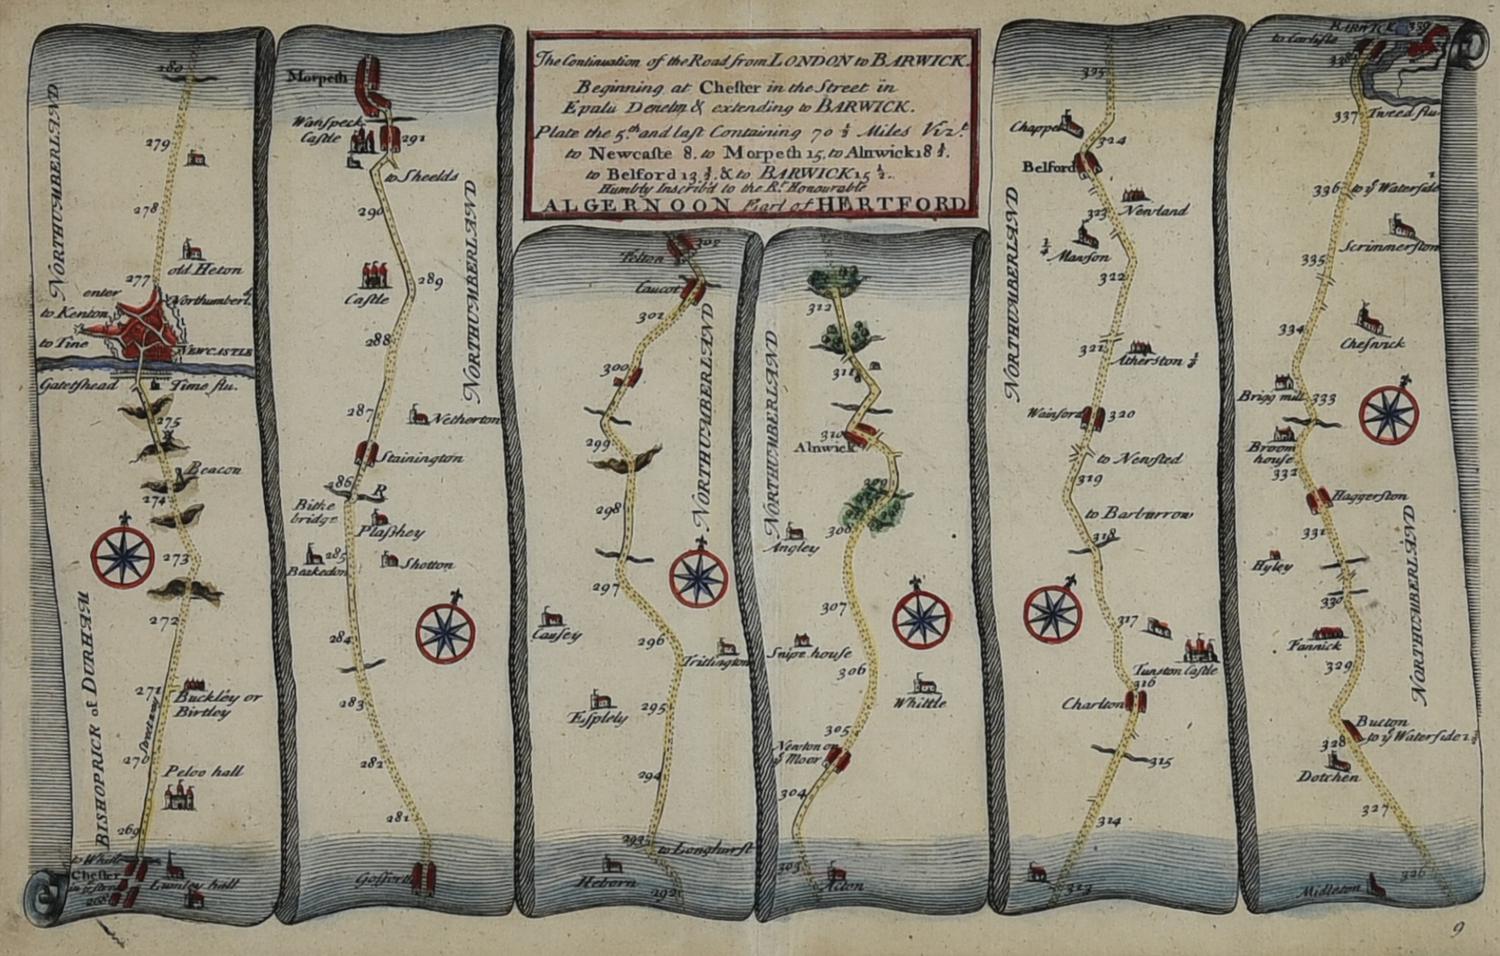 The Continuation of the Road from LONDON to BARWICK.
Beginning at Chester in the Street in
Epalu Denelm & extending to BARWICK.
Plate the 5th and last Containing 70 ½ Miles Vizt.
to Newcastle 8. to Morpeth 15. to Alnwick 18
to Belford 13 ¾. & to BARWICK 15 ½.
Humbly Inscrib'd to the Rt. Honourable
ALGERNOON Earl of HERTFORD
280
NORTHUMBERLAND
279
278
old Heton
277
enter
Northumberl.d
to Kenton
to Tine
NEWCASTLE
Gatetshead
Time flu.
275
Beacon
274
273
272
BISHOPRICK of DURHAM
271
Buckley or
Birtley
270
Peloo hall
269
Chester
Lumley hall
268
Morpeth
Wanspeck
Castle
291
to Sheelds
290
NORTHUMBERLAND
289
Castle
288
287
Netherton
Stainington
286
R
Bithe
bridge
Plasshey
285
Beakedon
Shotton
284
283
282
281
Gosforth
302
Felton
Caucot
301
NORTHUMBERLAND
300
299
298
297
Causey
296
Tritlington
Espley
295
294
293
to Longhurst
Heborn
292
312
NORTHUMBERLAND
311
310
Alnwick
309
308
Angley
307
Snipe house
306
Whittle
305
Newton on
ye Moor
304
303
Acton
325
Chappel
324
Belford
NORTHUMBERLAND
323
Newland
¼
Mawson
322
321
Atherston ½
Wainford
320
to Newsted
319
to Barburrow
318
317
Tunston Castle
316
Charlton
315
314
313
BARWICK
339
to Carlisle
338
337
Tweed flu.
336
to ye Waterside
Scrimmerston
335
334
Cheswick
Brigg mill
333
Broom
house
332
Haggerston
331
NORTHUMBERLAND
Hyley
330
Fannick
329
Bucton
to ye Waterside 1 ½
328
Dotchen
327
326
Midleton
9